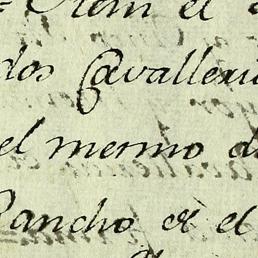 Item el
dos Cavalleri
el mesmo d
Rancho de el